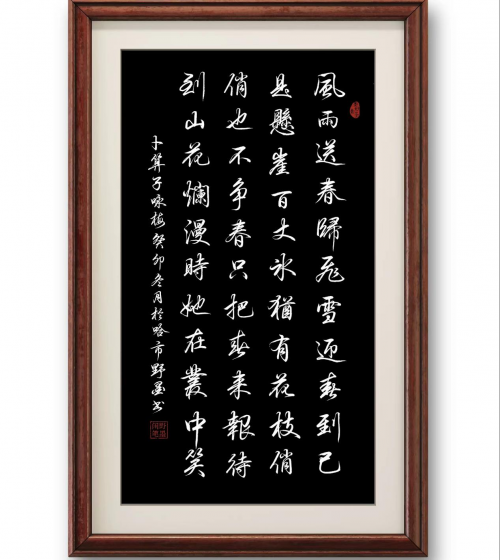 風雨送春歸飛雪迎春到已
是懸崖百丈冰猶有花枝俏
俏也不争春只把春来報待
到山花爛漫時她在叢中笑
卜算子咏梅癸卯冬月於喀市野墨书